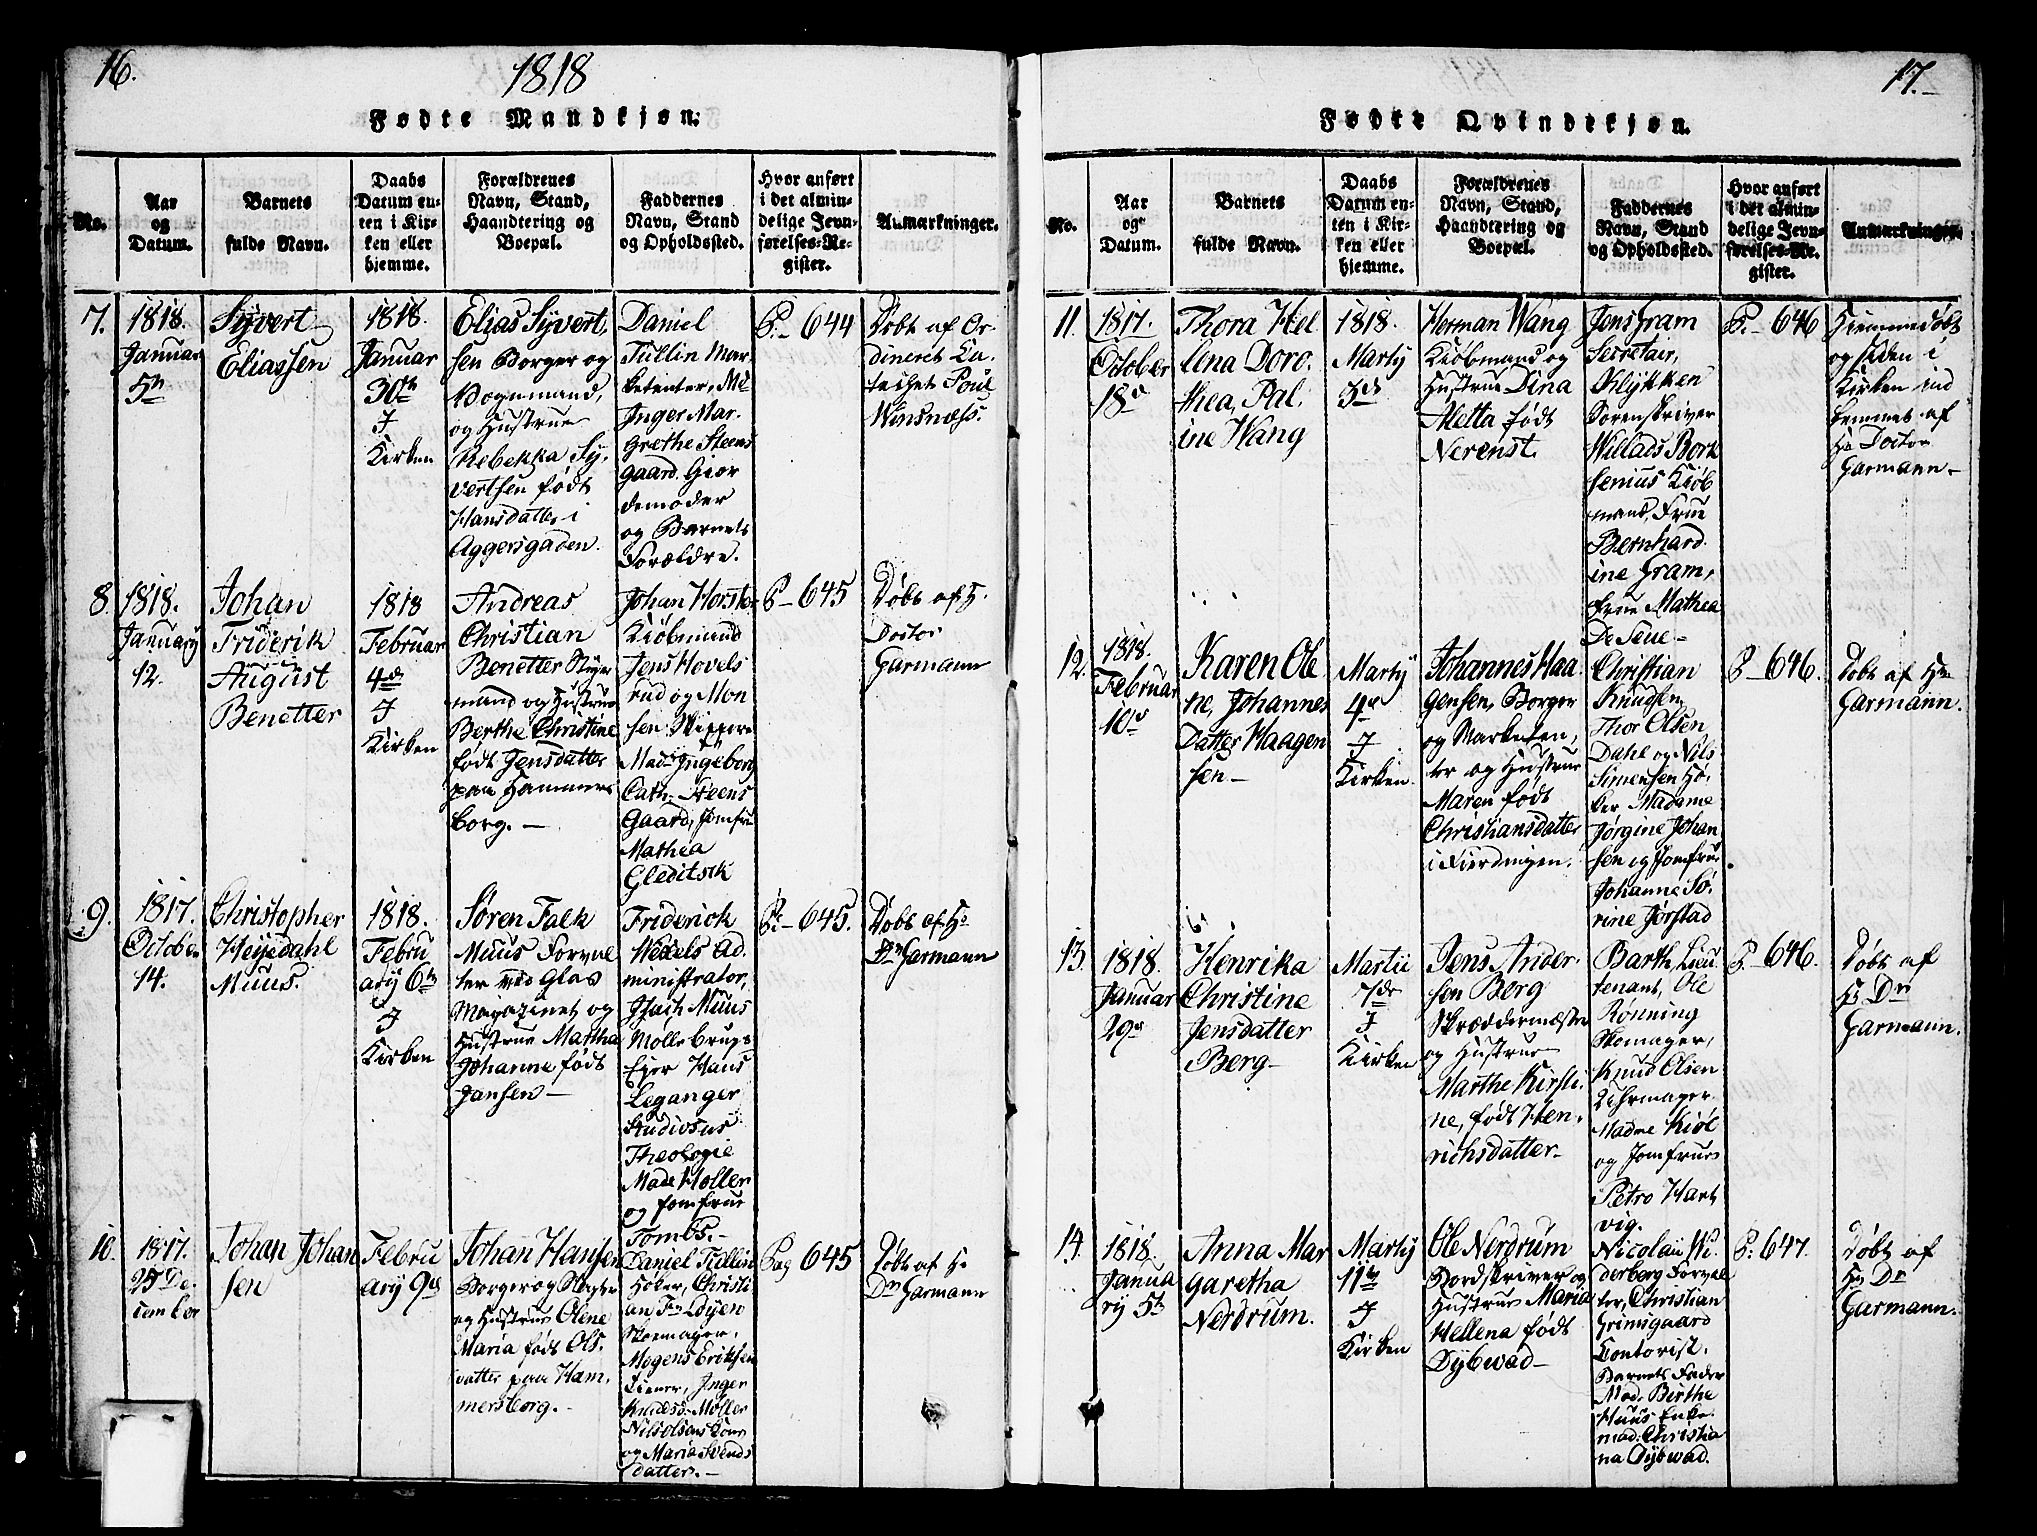 16.
1818
Fødte Mandkjøn.
No.
Aar
og
Datum.
Barnets
fulde Navn.
Daabs
Datum en-
ten i Kir-
ken eller
hjemme.
Forældrenes
Navn, Stand,
Haandtering og
Boepæl.
Faddernes
Navn, Stand
og Opholdssted.
Hvor anført
i det almin-
delige Jevn-
førelses-Re-
gister.
Anmærkninger.
7.
1818.
Januar
5te
Syvert
Eliassen
1818.
Januar
30te
I
Kirken
Elias Syvert,
sen Borger og
Vognmand,
og Hustrue
Rebekka Sy,
vertsen født
Hansdatter i
Aggersgaden.
Daniel
Tüllin Mar,
ketenter, Md
Inger Mar,
grethe Steens
gaard. Gior
demoder
og Barnets
Forældre.
P. 644
Døbt af Or,
dineret Ca,
techet Poul
Winsnæss.
8.
1818.
January
12.
Johan
Friderik
August
Benetter
1818
Februar
4de
I
Kirken
Andreas
Christian
Benetter
mand og Hustrue
Berthe Christine
født Jensdatter
paa Hammers
borg.
Johan Horster
Kiöbmand
Jens Hovels
rud og Mon
sen Skippere
Mad. Ingeborg
Cath. Steens
Gaard, Jomfru
Mathea
Gleditsck
P. 645
Døbt af H.
Doctor
Garmann
9.
1817.
October
14.
Christopher
Heyerdahl
Muus.
1818.
Febru
ary 6te
I
Kirken
Søren Falk
Muus Forval
ter ved Glas
Magazinet og
Hustrue Martha
Johanne født
Jansen
Friderich
Wexels Ad,
ministrator,
Isach Muus
Mølle brugs
Ejer Hans
Leganger
Studiosus
Theologie
Made Holler
og Jomfrue
Tombs.
P. 645.
Døbt af Hr
Dr Garmann
10.
1817.
25 De,
cember
Johan Johan
sen
Febru
ary 9de
Johan Hansen
Borger og
og Hustrue Olene
Maria født Ols,
datter paa Ham,
mersborg.
Daniel Tüllin
Høker, Christi
an Fr. Løyen
Skomager,
Mogens Eriksen
Tiener, Inger
Møller
Nils Olsens Kone
og Maria Svends
datter.
Pag 645
Døbt af Hr
Dr Garmann
17.
Fødte Qvindekjøn.
No.
Aar
og
Datum.
Barnets
fulde Navn.
Daabs
Datum en-
ten i Kir-
ken eller
hjemme.
Forældrenes
Navn, Stand,
Haandtering og
Boepæl.
Faddernes
Navn, Stand
og Opholdssted.
Hvor anført
i det almin-
delige Jevn-
førelses-Re-
gister.
Anmærkninger.
11.
1817.
October
18de
Thora Hel
lena Doro,
thea, Pal,
ine Wang
1818.
Martij
3die
Herman Wang
Kiöbmand og
Hustrue Dina
Aletta født
Nerenst.
Jens Gram
Secretair,
Klykken
Sorenskriver
Willads Bork
senius Kiöb
mand, Frue
Bernhard,
ine Gram,
Frue Mathea
De Seue
P. 646
Hiemmedøbt
og siden i
Kirken ind
kommet af
Hr Doctor
Garmann
12.
1818.
Februar
10de
Karen Ole
ne, Johannes
Datter Haagen
sen
Martij
4de
I
Kirken.
Johannes Haa,
gensen, Borger
og Marketen,
ter og Hustrue
Maren født
Christiansdatter
i Fierdingen.
Christian
Knudsen,
Thor Olsen
Dahl og Nils
Simensen Hø,
ker Madame
Jørgine Johan
sen og Jomfrue
Johanne Sø,
rine Jørstad
P. 646.
Døbt af Hr
Garmann.
13.
1818.
Januar
29de
Henrika
Christine
Jensdatter
Berg
Martii
7de
I
Kirken
Jens Ander,
sen Berg
Skræddermæster
og Hustrue
Marthe Kirsti,
ne, født Hen,
richsdatter
Barth, Lieu,
tenant, Ole
Rønning
Skomager,
Knud Olsen
Uhrmager.
Madme Kiöl
og Jomfrue
Petro Hart
vig.
P. 646.
Døbt af
Hr Dr
Garmann.
14.
1818.
Janua
ry 5te
Anna Mar
garetha
Nerdrum.
Martij
11te
I
Kirken
Ole Nerdrum
Hustrue Maria
Hellena født
Dybwad
Nicolay Wi,
derberg Forval
ter, Christian
Grimsgaard
Contorist,
Barnets Fader
Mad. Birthe
Huus Enke.
mad. Christia
na Dybwad.
P. 647.
Døbt af
Hr Dr
Garmann.